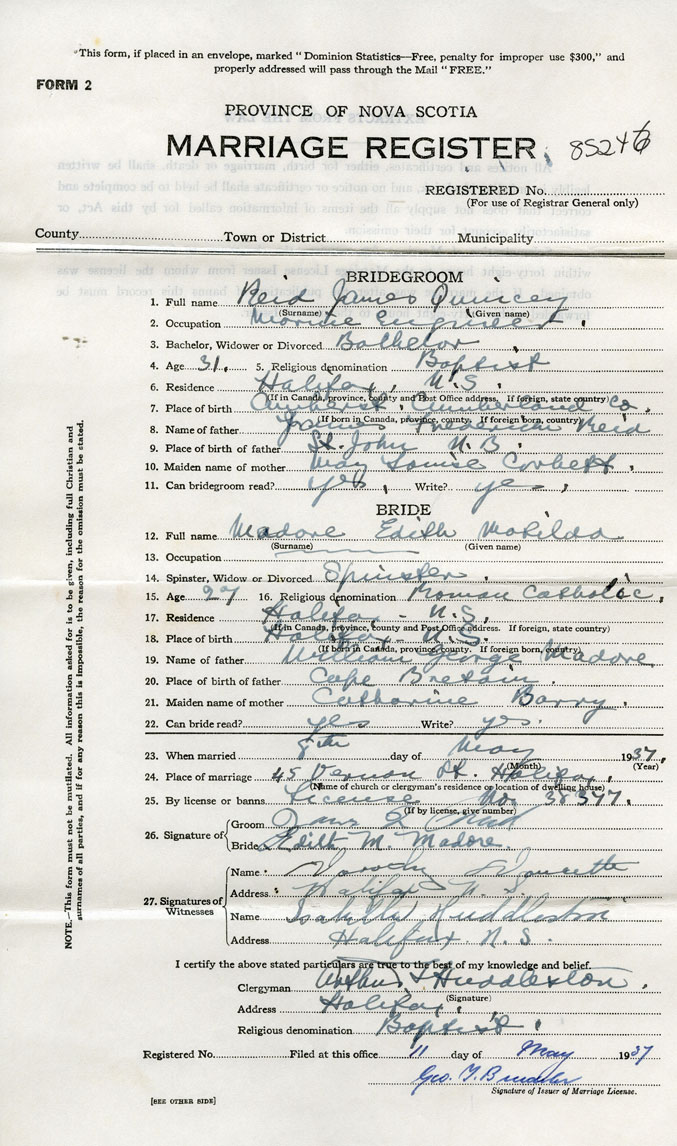 "This form, if placed in an envelope, marked "Dominion Statistics—Free, penalty for improper use $300," and
properly addressed will pass through the Mail "FREE."
FORM 2
PROVINCE OF NOVA SCOTIA
MARRIAGE REGISTER
REGISTERED No.
(For use of Registrar General only)
County Town or District Municipality
BRIDEGROOM
1. Full name Reid James Quincey
(Surname) (Given name)
2. Occupation Marine Engineer
3. Bachelor, Widower or Divorced Bachelor
4. Age 31. 5. Religious denomination Baptist
6. Residence Halifax, N.S.
(If in Canada, province, county and Post Office address. If foreign, state country)
7. Place of birth Amherst Cumberland Co.
(If born in Canada, province, county. If foreign born, country)
8. Name of father James Frederick Reid
9. Place of birth of father St. John N.B.
10. Maiden name of mother May Louise Corbett
11. Can bridegroom read? yes Write? yes
BRIDE
12. Full name Madore Edith Matilda
(Surname) (Given name)
13. Occupation
14. Spinster, Widow or Divorced Spinster
15. Age 27 16. Religious denomination Roman Catholic
17. Residence Halifax - N.S.
(If in Canada, province, county and Post Office address. If foreign, state country)
18. Place of birth Halifax - N.S.
(If born in Canada, province, county. If foreign born, country)
19. Name of father William George Madore
20. Place of birth of father Cape Breton
21. Maiden name of mother Catharine Barry
22. Can bride read? yes Write? yes.
23. When married 8th day of May 1937
(Month) (Year)
24. Place of marriage 45 Vernon St. Halifax
(Name of church or clergyman's residence or location of dwelling house)
25. By license or banns License No. 38347
(If by license, give number)
26. Signature of Groom
Bride Edith M. Madore.
27. Signatures of Witnesses
Name Dorothy Doucette
Address Halifax N.S.
Name Isabella Huddleston
Address Halifax N.S.
I certify the above stated particulars are true to the best of my knowledge and belief.
Clergyman Arthur Huddleston
(Signature)
Address Halifax
Religious denomination Baptist
Registered No. Filed at this office 11 day of May 1937
Geo. 
Signature of Issuer of Marriage License.
[SEE OTHER SIDE]
NOTE.—This form must not be mutilated. All information asked for is to be given, including full Christian and
surnames of all parties, and if for any reason this is impossible, the reason for the omission must be stated.